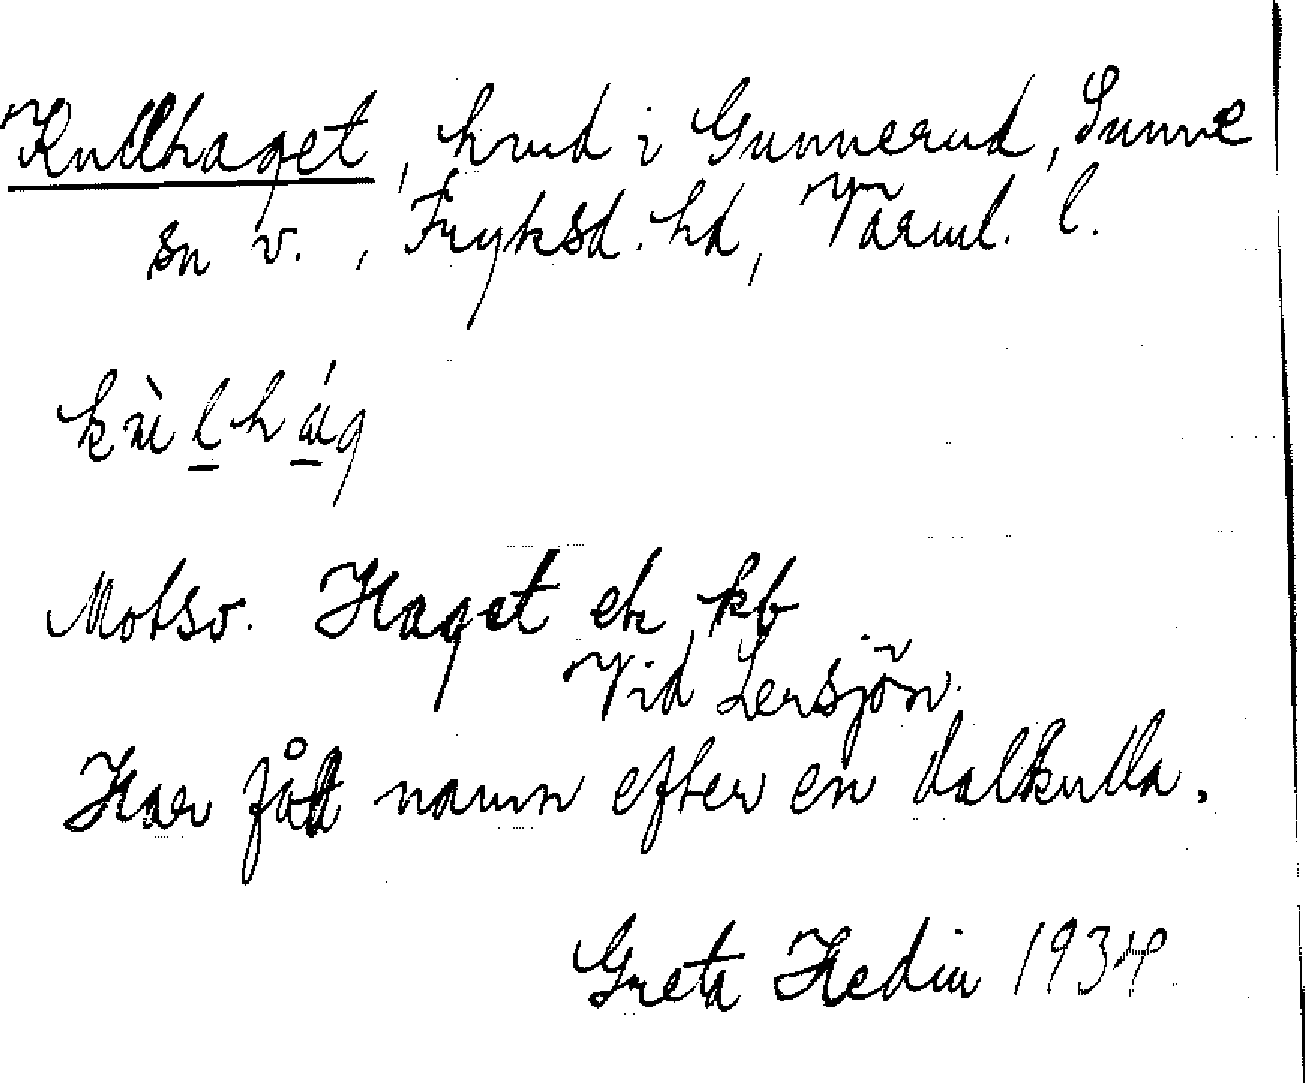 Kullhaget, hmd i Gunnerud, Sunne
sn v., Fryksd. hd, Värml. l.
kùlhág
Motsv. Haget ek kb
Vid Lersjön.
Har fått namn efter en dalkulla.
Greta Hedin 1934